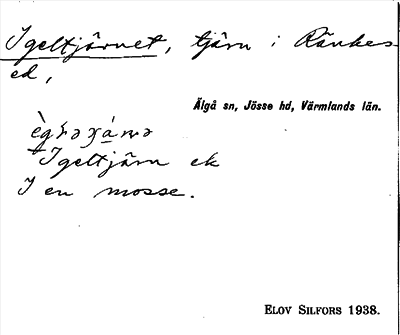 Igeltjärnet, tjärn i Ränkes-
ed,
Älgå sn, Jösse hd, Värmlands län.
Igeltjärn ek
I en mosse.
ELOV SILFORS 1938.